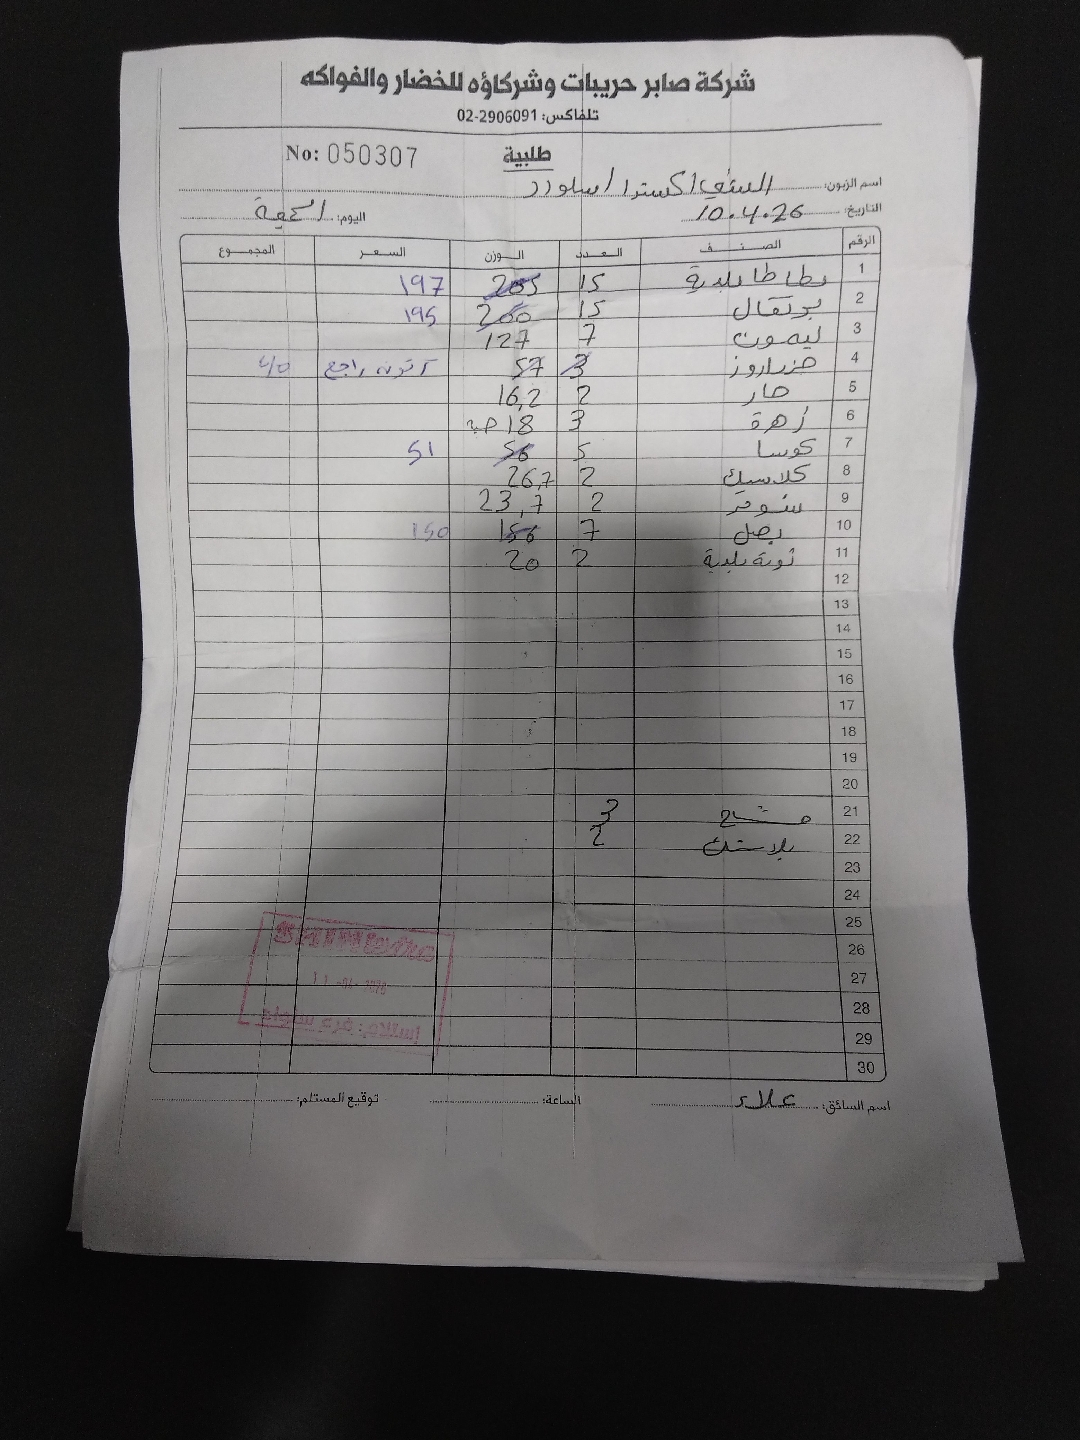 شركة صابر حريبات وشركاؤه للخضار والفواكه
تلفاكس: 02-2906091
No: 050307
طلبية
اسم الزبون: الشني اكسترا / سلورد
التاريخ: 10.4.26 اليوم: الجمعة
الرقم الصنف العدد الوزن السعر المجموع
1 بطاطا بلدية 15 205 197
2 برتقال 15 200 195
3 ليمون 7 127
4 3 57 راجع
5 حار 2 16,2
6 زهرة 3 18 حبة
7 كوسا 5 56 51
8 كلاسيك 2 26,7
9 2 23,7
10 بصل 7 156 150
11 بلدية 2 20
12
13
14
15
16
17
18
19
20
21 مشاح 3
22 بلاستك 2
23
24
25
26
27
28
29
30
اسم السائق: علاء الساعة: توقيع المستلم: